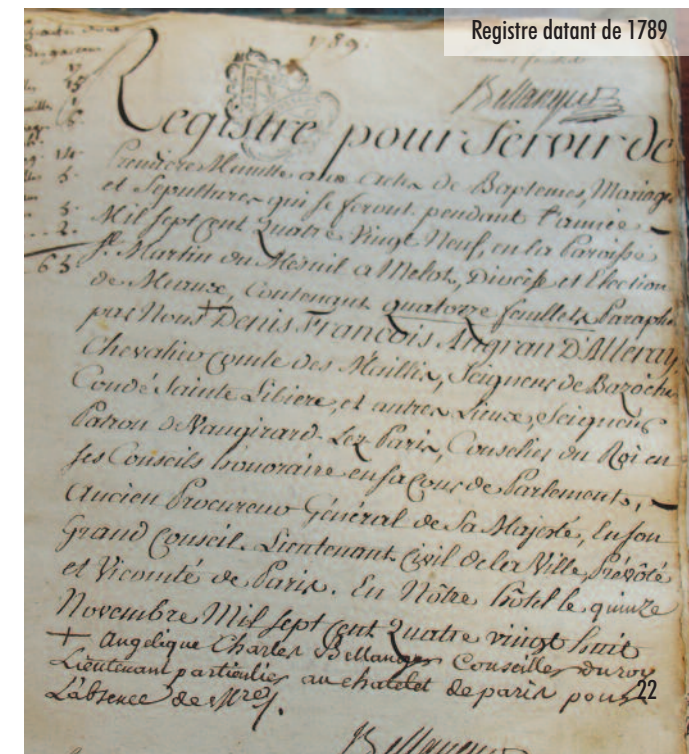 Registre datant de 1789
1789.
Bellanger
Registre pour servir de
Premiere Minutte aux actes de Baptemes, Mariages
et Sepultures qui se feront pendant l'année
Mil sept cent Quatre Vingt Neuf, en la Paroisse
St. Martin du Mesnil a Melot, Diocèse et Election
de Meaux, Contenant quatorze feuillets Paraphé
par Nous + Denis François Angran D'Alleray,
Chevalier comte des Maillis, Seigneur de Bazoche
Condé Sainte Libiere, et autres Lieux, Seigneur
Patron de Vaugirard-Lez-Paris, Conseiller du Roi en
ses Conseils honoraire en sa Cour de Parlement,
Ancien Procureur Général de Sa Majesté, en son
Grand Conseil. Lieutenant Civil de la Ville, Prévôté
et Vicomté de Paris. En Nôtre hôtel le quinze
Novembre Mil sept Cent Quatre vingt huit
+ Angelique Charles Bellanger Conseiller du roy
Lieutenant particulier au chatelet de paris pour
L'absence de
22
Bellanger
14
5.
5.
2.
63